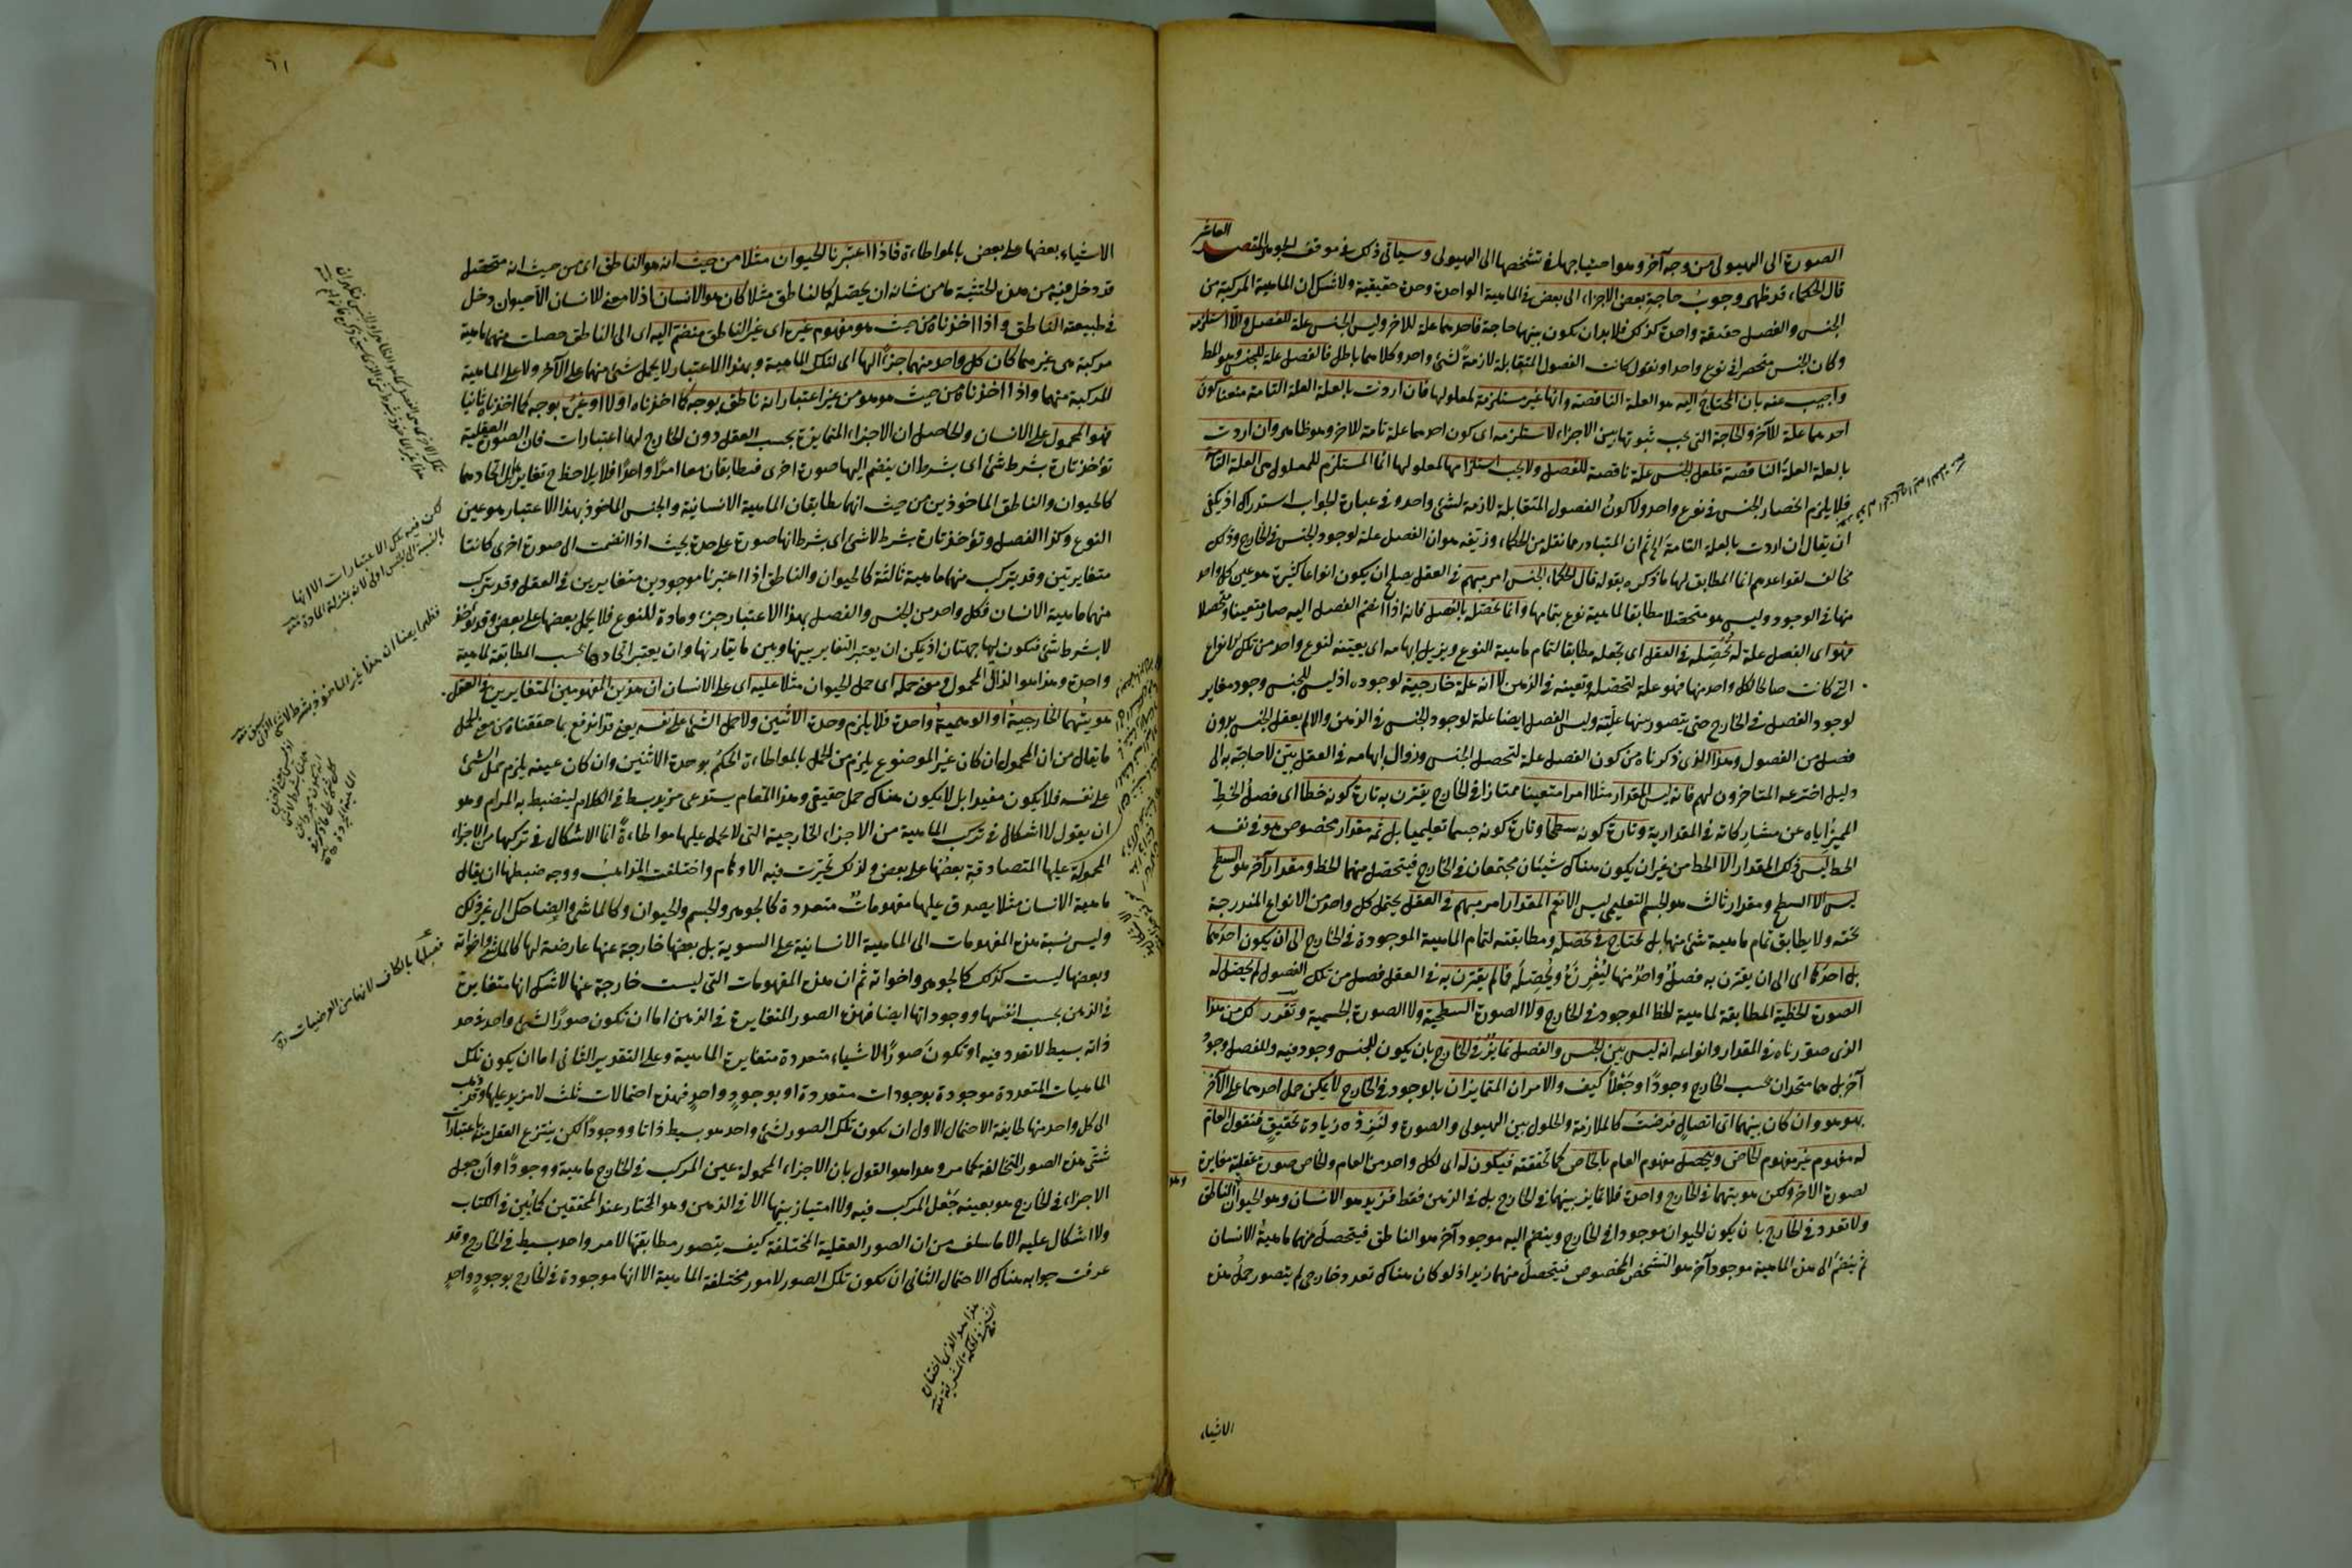 العاشر
الصورة الى الهيولى من وجه آخر وهو احتياجها في تشخصها الى الهيولى وسياتى ذلك في موقف الجوهر المقصد
قال الحكماء قد ظهر وجوب حاجة بعض الاجزاء الى بعض في الماهية الواحدة وحدة حقيقية ولا شك ان الماهية المركبة من
الجنس والفصل حقيقة واحدة كذلك فلا بد ان يكون بينهما حاجة فاحدهما علة للآخر وليس الجنس علة للفصل والا استلزمه
وكان الجنس منحصرا في نوع واحد او نقول كانت الفصول المتقابلة لازمة لشئ واحد وكلاهما باطل فالفصل علة للجنس وهو المط
واجيب عنه بان المحتاج اليه هو العلة الناقصة وانها غير مستلزمة لمعلولها فان اردت بالعلة العلة التامة منعنا كون
احدهما علة للآخر والحاجة التى يجب ثبوتها بين الاجزاء لا تستلزمه اى كون احدهما علة تامة للآخر وهو ظاهر وان اردت
بالعلة العلة الناقصة فلعل الجنس علة ناقصة للفصل ولا يجب استلزامها لمعلولها انما المستلزم للمعلول هى العلة التامة
فلا يلزم انحصار الجنس في نوع واحد ولا كون الفصول المتقابلة لازمة لشئ واحد وفي عبارة الجواب استدراك اذ يكفى
ان يقال ان اردت بالعلة التامة الخ ثم ان المتبادر مما نقله من الحكماء وزيفه هو ان الفصل علة لوجود الجنس في الخارج وذلك
مخالف لقواعدهم انما المطابق لها ما ذكره بقوله قال الحكماء الجنس امر مبهم في العقل يصلح ان يكون انواعا كثيرة هو عين كل واحد
منها في الوجود وليس هو متحصلا مطابقا لماهية نوع بتمامها وانما تحصله بالفصل فانه اذا انضم الفصل اليه صار متعينا ومتحصلا
فهو اى الفصل علة له يحصله في العقل اى يجعله مطابقا لتمام ماهية النوع ويزيل ابهامه اى يعينه لنوع واحد من تلك الانواع
التى كانت صالحا لكل واحد منها فهو علة لتحصله وتعينه في الذهن لا انه علة خارجية لوجوده اذ ليس للجنس وجود مغاير
لوجود الفصل في الخارج حتى يتصور بينهما علية وليس الفصل ايضا علة لوجود الجنس في الذهن والا لم يعقل الجنس بدون
فصل من الفصول وهذا الذى ذكرناه من كون الفصل علة لتحصل الجنس وزوال ابهامه في العقل بيّن لا حاجة به الى
دليل اخترعه المتاخرون لهم فانه ليس المقدار مثلا امرا متعينا ممتازا في الخارج يقترن به تارة كونه خطا اى فصل الخط
المميز اياه عن مشاركاته في المقدارية وتارة كونه سطحا وتارة كونه جسما تعليميا بل ثمه مقدار مخصوص هو في نفسه
الخط ليس ذلك المقدار الا الخط من غير ان يكون هناك شيئان مجتمعان في الخارج فيتحصل منهما الخط ومقدار آخر هو السطح
ليس الا السطح ومقدار ثالث هو الجسم التعليمى ليس الا ثم المقدار امر مبهم في العقل يحتمل كل واحد من الانواع المندرجة
تحته ولا يطابق تمام ماهية شئ منها بل يحتاج في تحصله ومطابقته لتمام الماهية الموجودة في الخارج الى ان يكون احدها
بل احدها اى الى ان يقترن به فصل واحد منها ليفرزه ويحصله فما لم يقترن به في العقل فصل من تلك الفصول لم يحصل له
الصورة الخطية المطابقة لماهية الخط الموجود في الخارج ولا الصورة السطحية ولا الصورة الجسمية وتقرر لك من هذا
الذى صورناه في المقدار وانواعه انه ليس بين الجنس والفصل تمايز في الخارج بان يكون للجنس وجود فيه وللفصل وجود
آخر بل هما متحدان بحسب الخارج وجودا وجعلا كيف والامران المتمايزان بالوجود في الخارج لا يمكن حمل احدهما على الآخر
بهو هو وان كان بينهما اى اتصال فرضت كالملازمة والحلول بين الهيولى والصورة ولنزده زيادة تحقيق فنقول العام
له مفهوم غير مفهوم الخاص ويتحصل مفهوم العام بالخاص كما تحققته فيكون له اى لكل واحد من العام والخاص صورة عقلية مغايرة
لصورة الآخر ولكن هويتهما في الخارج واحدة فلا تمايز بينهما في الخارج بل في الذهن فقط فزيد هو الانسان وهو الحيوان الناطق
ولا تعدد في الخارج بان يكون الحيوان موجودا في الخارج وينضم اليه موجود آخر هو الناطق فيتحصل منهما ماهية الانسان
ثم ينضم الى هذه الماهية موجود آخر هو التشخص المخصوص فيتحصل منهما زيد اذ لو كان هناك تعدد خارجى لم يتصور حمل هذه
الاشياء
٦١
الاشياء بعضها على بعض بالمواطاءة فاذا اعتبرنا الحيوان مثلا من حيث انه هو الناطق اى من حيث انه متحصل
قد دخل فيه من هذه الحيثية ما من شانه ان يحصله كالناطق مثلا كان هو الانسان اذ لا معنى للانسان الا حيوان دخل
في طبيعته الناطق واذا اخذناه من حيث هو مفهوم غيره اى غير الناطق منضم اليه اى الى الناطق حصلت منهما ماهية
مركبة هى غيرهما كان كل واحد منهما جزءا لها اى لتلك الماهية وبهذا الاعتبار لا يحمل شئ منهما على الآخر ولا على الماهية
المركبة منهما واذا اخذناه من حيث هو هو من غير اعتبار انه ناطق بوجه كما اخذناه اولا او غيره بوجه كما اخذناه ثانيا
فهو المحمول على الانسان والحاصل ان الاجزاء المتمايزة بحسب العقل دون الخارج لها اعتبارات فان الصورة العقلية
تؤخذ تارة بشرط شئ اى بشرط ان ينضم اليها صورة اخرى فتطابقان معا امرا واحدا فلا يلاحظ ح تغايرهما بل اتحادهما
كالحيوان والناطق الماخوذين من حيث انهما يطابقان الماهية الانسانية والجنس الماخوذ بهذا الاعتبار هو عين
النوع وكذا الفصل وتؤخذ تارة بشرط لا شئ اى بشرط انها صورة على حدة بحيث اذا انضمت الى صورة اخرى كانتا
متغايرتين وقد يتركب منهما ماهية ثالثة كالحيوان والناطق اذا اعتبرنا موجودين متغايرين في العقل وقد يتركب
منهما ماهية الانسان فكل واحد من الجنس والفصل بهذا الاعتبار جزء ومادة للنوع فلا يحمل بعضها على بعض وقد تؤخذ
لا بشرط شئ فتكون لها جهتان اذ يمكن ان يعتبر التغاير بينها وبين ما يقارنها وان يعتبر اتحادهما بحسب المطابقة لماهية
واحدة وهذا هو الذاتى المحمول ومعنى حمله اى حمل الحيوان مثلا عليه اى على الانسان ان هذين المفهومين المتغايرين في العقل
هويتهما الخارجية او الوهمية واحدة فلا يلزم وحدة الاثنين ولا حمل الشئ على نفسه يعنى قد اندفع بما حققناه من معنى الحمل
ما يقال من ان المحمول ان كان غير الموضوع يلزم من الحمل بالمواطاءة الحكم بوحدة الاثنين وان كان عينه يلزم حمل الشئ
على نفسه فلا يكون مفيدا بل لا يكون هناك حمل حقيقى وهذا المقام يستدعى مزيد بسط في الكلام لينضبط به المرام وهو
ان يقول لا اشكال في تركب الماهية من الاجزاء الخارجية التى لا تحمل عليها مواطاءة انما الاشكال في تركبها من الاجزاء
المحمولة عليها المتصادقة بعضها على بعض ولذلك تحيرت فيه الاوهام واختلفت المذاهب ووجه ضبطها ان يقال
ماهية الانسان مثلا يصدق عليها مفهومات متعددة كالجوهر والجسم والحيوان وكالماشى والضاحك الى غير ذلك
وليس نسبة هذه المفهومات الى الماهية الانسانية على السوية بل بعضها خارجة عنها عارضة لها كالماشى واخواته
وبعضها ليست كذلك كالجوهر واخواته ثم ان هذه المفهومات التى ليست خارجة عنها لا شك انها متغايرة
في الذهن بحسب انفسها ووجوداتها ايضا فهذه الصور المتغايرة في الذهن اما ان تكون صورا لشئ واحد في حد
ذاته بسيط لا تعدد فيه او تكون صورا لاشياء متعددة متغايرة الماهية وعلى التقدير الثانى اما ان يكون تلك
الماهيات المتعددة موجودة بوجودات متعددة او بوجود واحد فهذه احتمالات ثلث لا مزيد عليها وقد ذهب
الى كل واحد منها طايفة الاحتمال الاول ان يكون تلك الصور لشئ واحد هو بسيط ذاتا ووجودا لكن ينتزع العقل منه باعتبارات
شتى هذه الصور المتخالفة كما مر وهذا هو القول بان الاجزاء المحمولة عين المركب في الخارج ماهية ووجودا وان جعل
الاجزاء في الخارج هو بعينه جعل المركب فيه ولا امتياز بينها الا في الذهن وهو المختار عند المحققين كما بين في الكتاب
ولا اشكال عليه الا ما سلف من ان الصور العقلية المختلفة كيف يتصور مطابقتها لامر واحد بسيط في الخارج وقد
عرفت جوابه هناك الاحتمال الثانى ان يكون تلك الصور لامور مختلفة الماهية الا انها موجودة في الخارج بوجود واحد
لكن فيه تلك الاعتبارات الا انها
بالنسبة الى الجنس اولى لانه بمنزلة المادة منه
هذا هو الذى اختاره